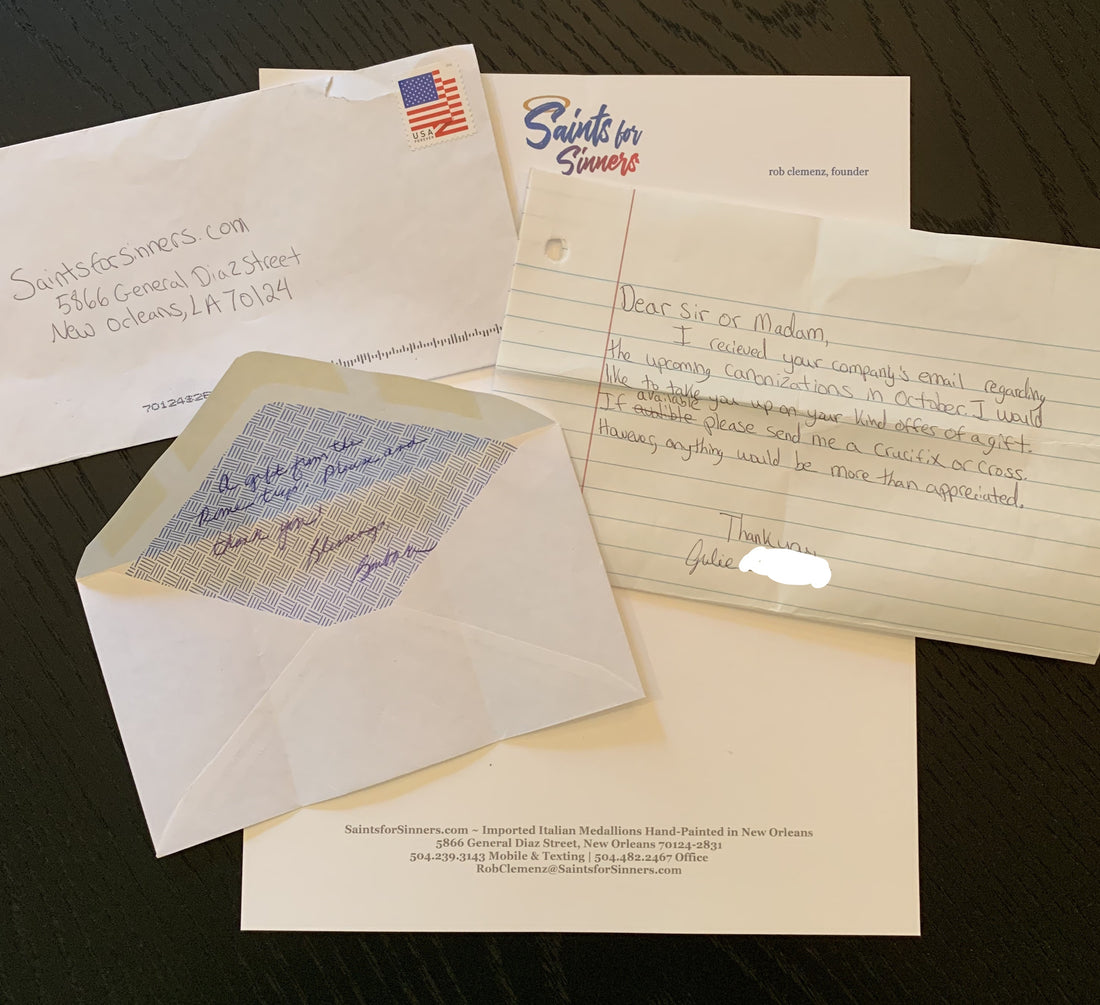 SaintsforSinners.com
5866 General Diaz Street
New Orleans, LA 70124
USA
FOREVER
Saints for
Sinners
rob clemenz, founder
Dear Sir or Madam,
I recieved your company's email regarding
the upcoming canonizations in October. I would
like to take you up on your kind offer of a gift.
available
If please send me a crucifix or cross.
However, anything would be more than appreciated.
Thank you
Julie
A gift from the
Rome trip! please and
thank you!
Blessings
Barbara
SaintsforSinners.com ~ Imported Italian Medallions Hand-Painted in New Orleans
5866 General Diaz Street, New Orleans 70124-2831
504.239.3143 Mobile & Texting | 504.482.2467 Office
RobClemenz@SaintsforSinners.com